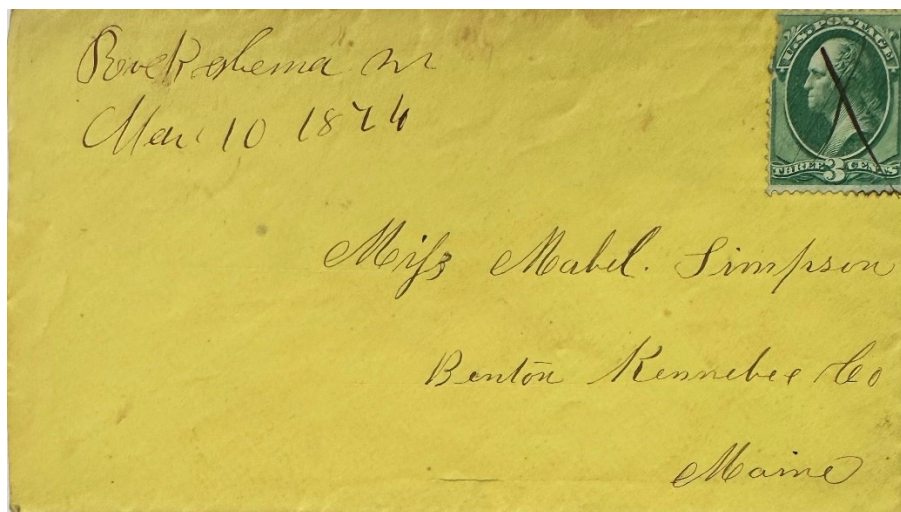 Rockabema M
Mar 10 1874
U.S. POSTAGE
THREE 3 CENTS
Miss Mabel. Simpson
Benton Kennebec Co
Maine